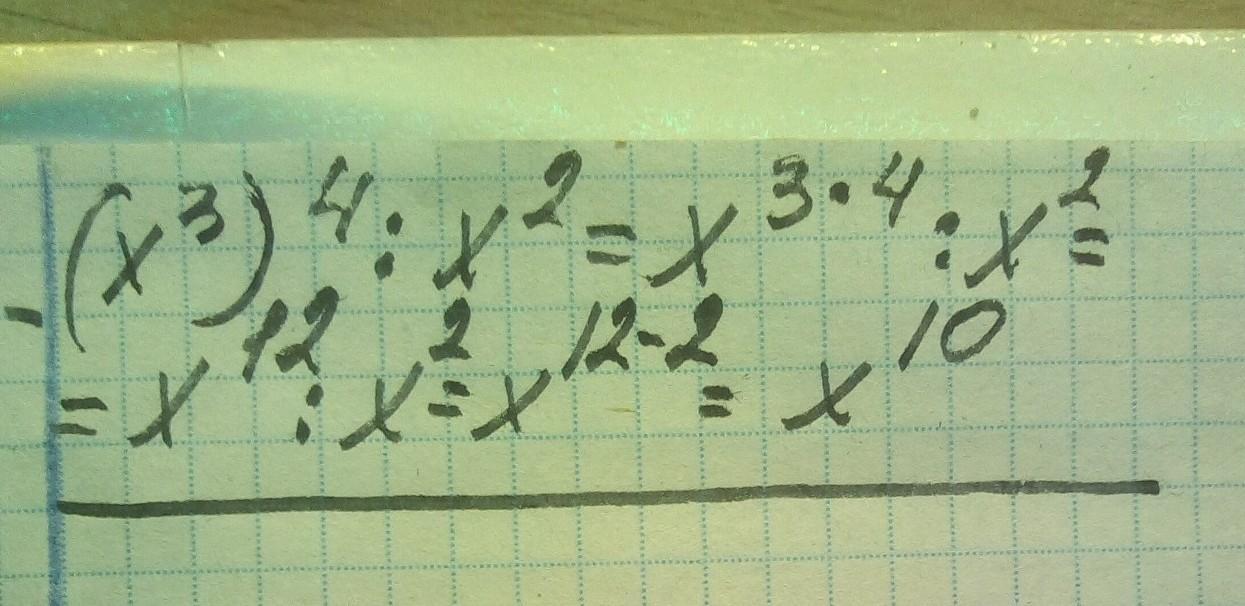 (x³)⁴ : x² = x³·⁴ : x² =
= x¹² : x² = x¹²⁻² = x¹⁰